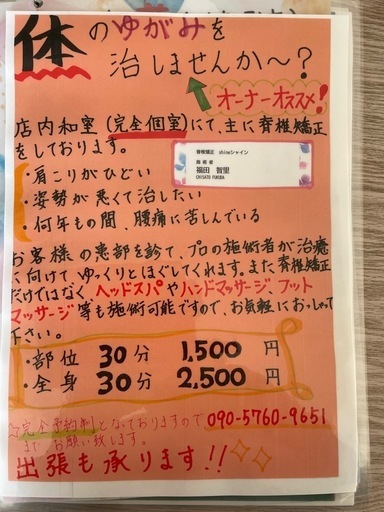 体のゆがみを
治しませんか〜?
オーナーオススメ!
店内和室(完全個室)にて、主に脊椎矯正
をしております。
脊椎矯正 shineシャイン
施術者
福田 智里
CHISATO FUKUDA
・肩こりがひどい
・姿勢が悪くて治したい
・何年もの間、腰痛に苦しんでいる
お客様の患部を診て、プロの施術者が治癒
に向けてゆっくりとほぐしてくれます。また脊椎矯正
だけではなくヘッドスパやハンドマッサージ、フット
マッサージ等も施術可能ですので、お気軽におっしゃって
下さい。
・部位 30分 1,500円
・全身 30分 2,500円
☆完全予約制となっておりますので 090-5760-9651
までお願い致します。
出張も承ります!!